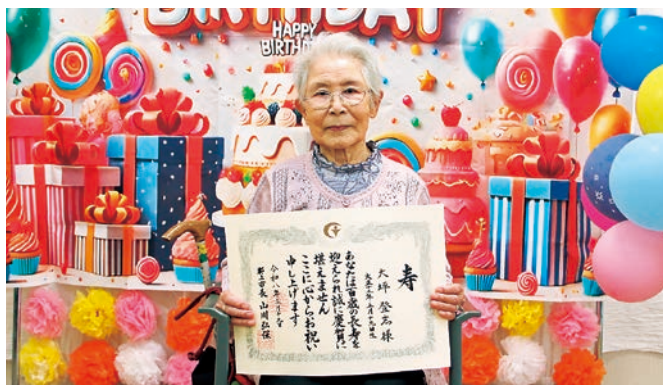 BIRTHDAY
HAPPY
BIRTHD
寿
大坪 様
あなたは百歳の長寿を
迎えられ誠に慶賀に
堪えません
ここに心からお祝い
申し上げます
令和八年
郡上市長 山川弘保